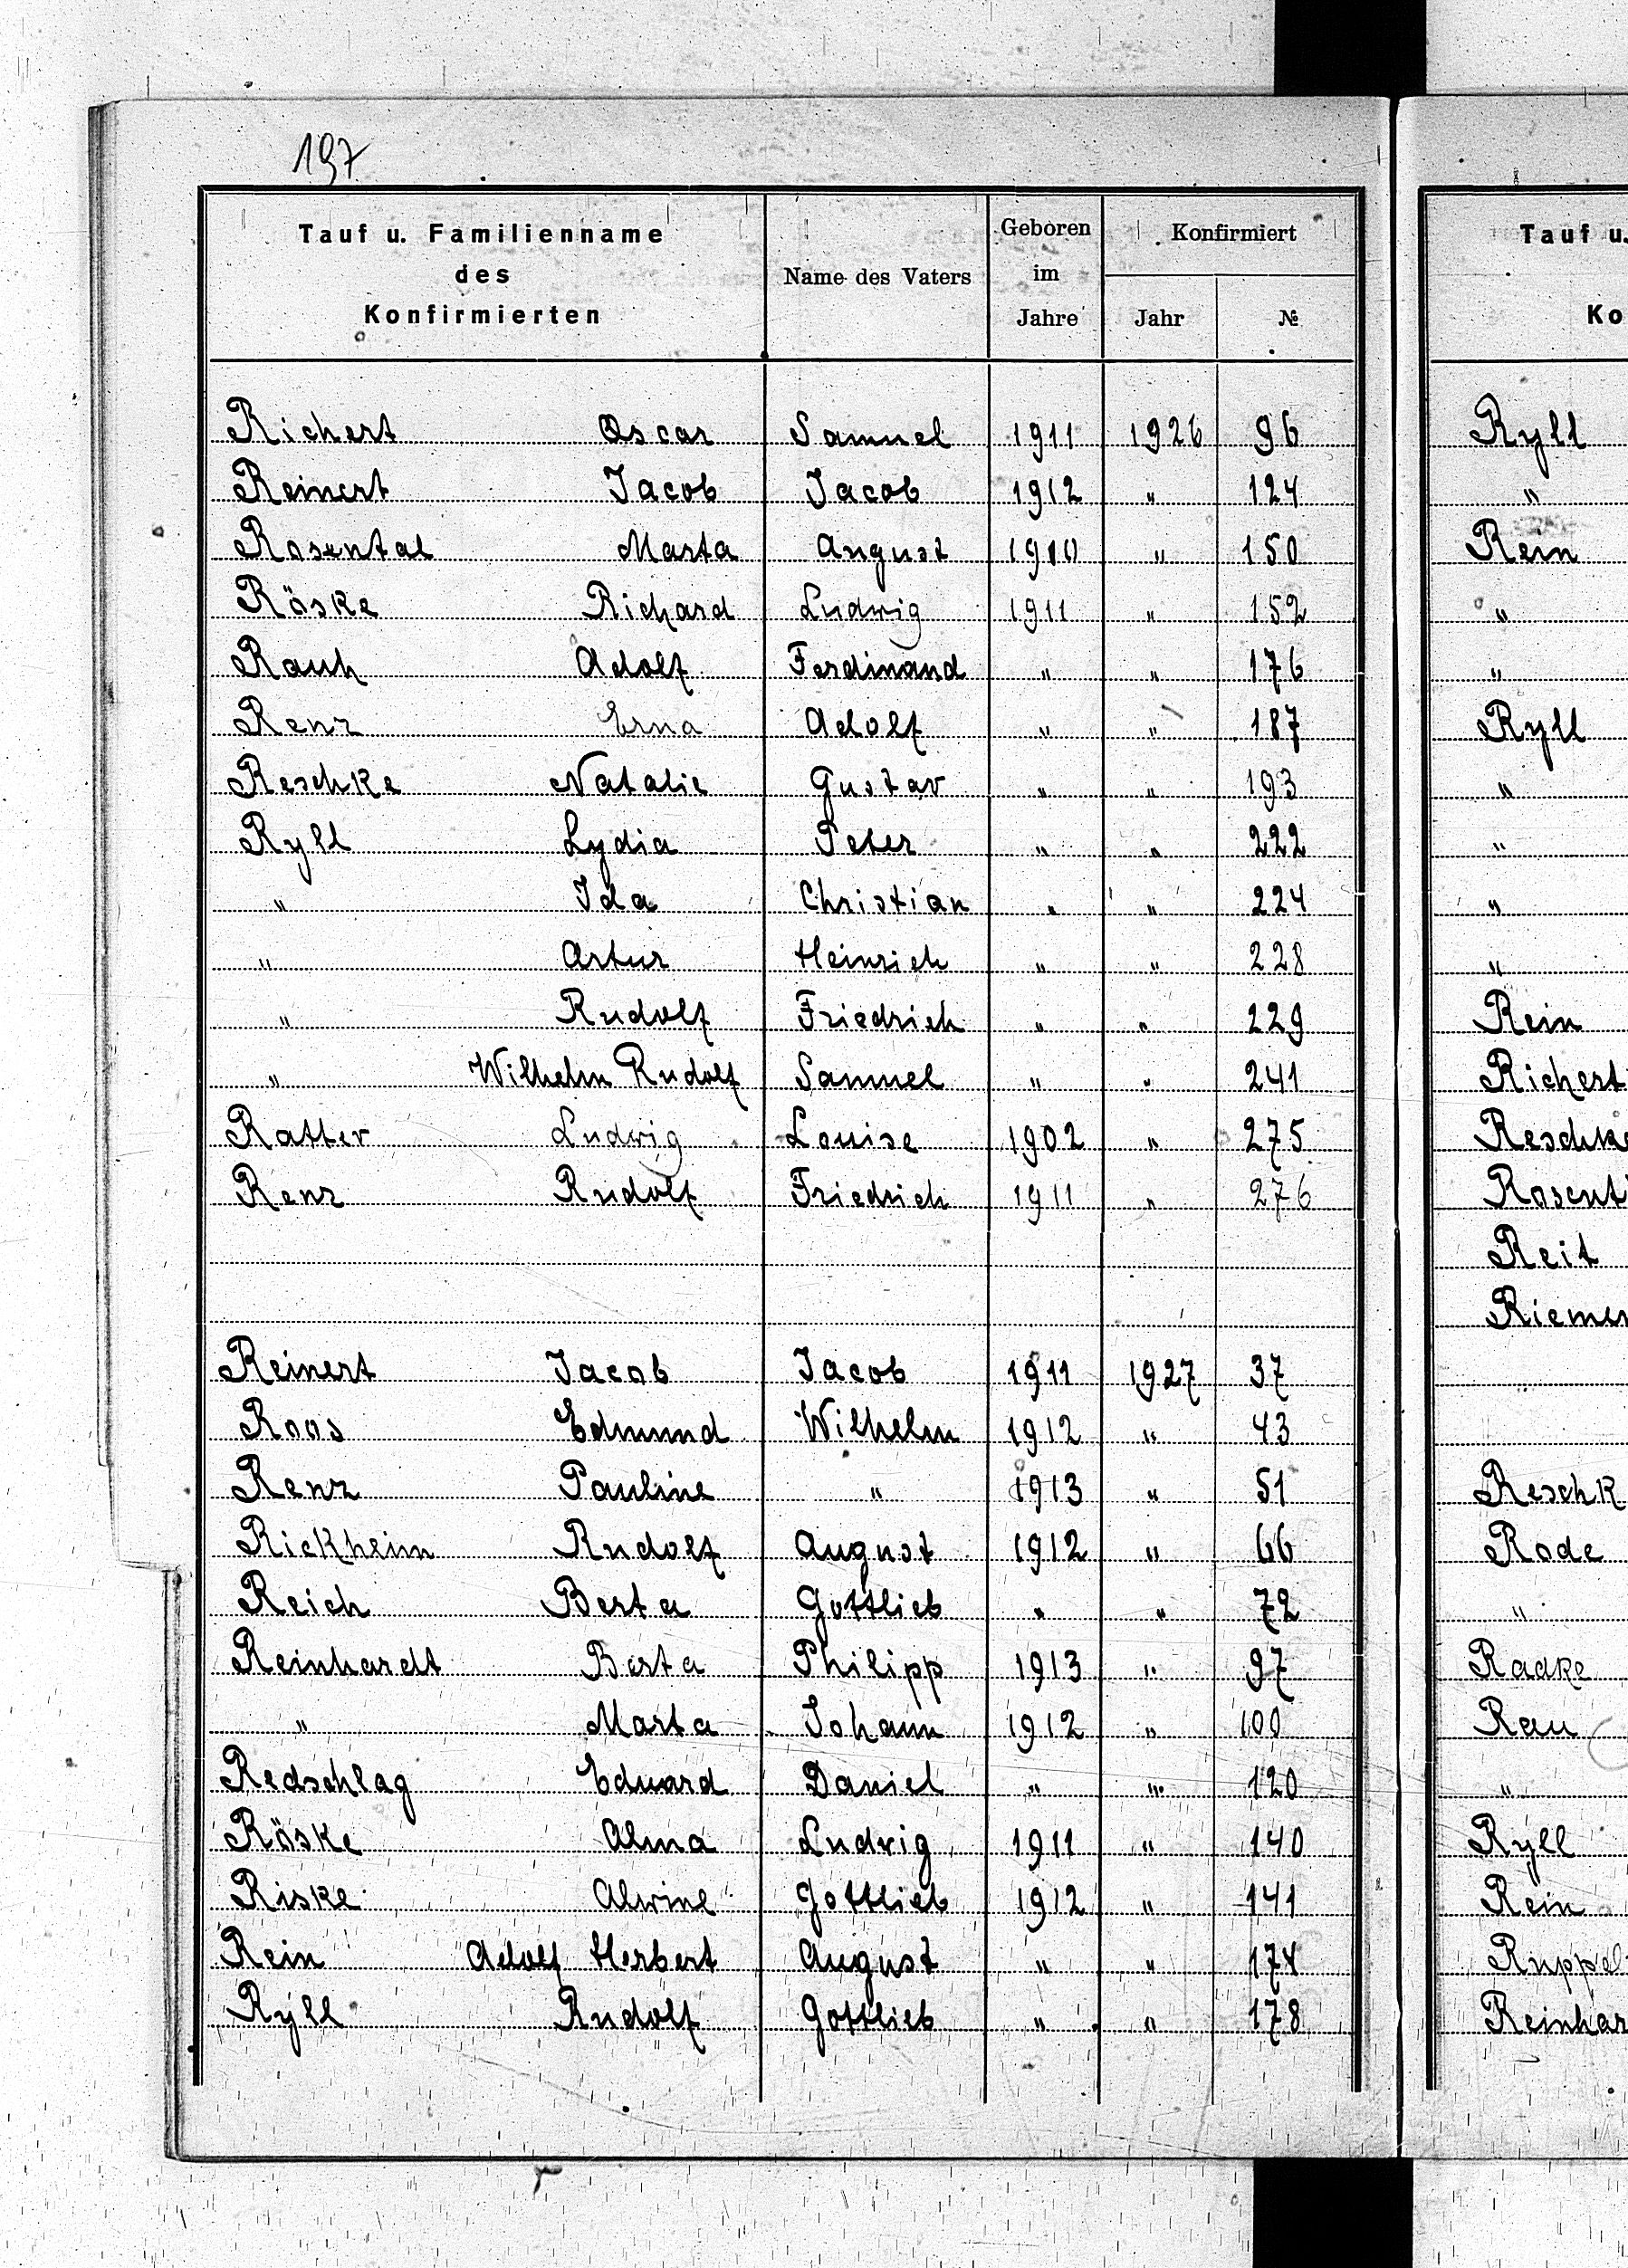 197
Tauf u. Familienname des Konfirmierten | Name des Vaters | Geboren im Jahre | Konfirmiert Jahr | №
Richert Oscar Samuel 1911 1926 96
Reinert Jacob Jacob 1912 " 124
Rosental Marta August 1910 " 150
Röske Richard Ludwig 1911 " 152
Rauh Adolf Ferdinand " " 176
Renz Erna Adolf " " 187
Reschke Natalie Gustav " " 193
Ryll Lydia Peter " " 222
" Ida Christian " " 224
" Artur Heinrich " " 228
" Rudolf Friedrich " " 229
" Wilhelm Rudolf Samuel " " 241
Ratter Ludwig Louise 1902 " 275
Renz Rudolf Friedrich 1911 " 276
Reinert Jacob Jacob 1911 1927 37
Roos Edmund Wilhelm 1912 " 43
Renz Pauline " 1913 " 51
Rickheim Rudolf August 1912 " 66
Reich Berta Gottlieb " " 72
Reinhardt Berta Philipp 1913 " 97
" Marta Johann 1912 " 100
Redschlag Eduard Daniel " " 120
Röske Alma Ludwig 1911 " 140
Riske Alwine Gottlieb 1912 " 141
Rein Adolf Herbert August " " 174
Ryll Rudolf Gottlieb " " 178
Tauf u.
Ko
Ryll
"
Rein
"
"
Ryll
"
"
"
"
Rein
Richert
Reschke
Rosent
Reit
Riemer
Reschk
Rode
"
Radke
Rau
"
Ryll
Rein
Ruppel
Reinhar